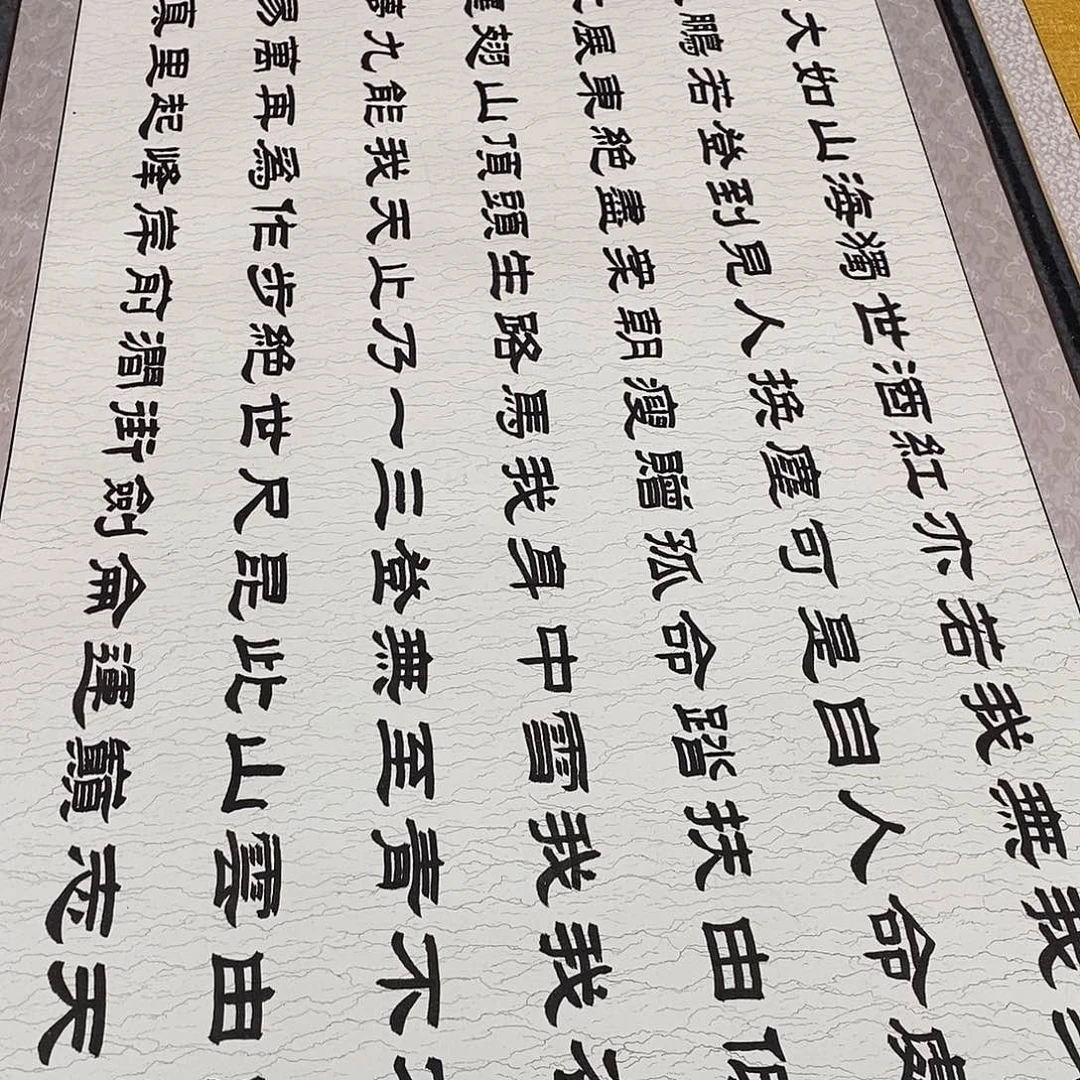 大如山海獨世酒紅亦若我無我
鵬若登到見人換可是自人命處
展東絕盡朝瘦孤命踏扶由
翅山頂頭生路馬我身中雪我我
九能我天止乃一三登無至責不
易萬再爲作步絕世尺昆此山雲由
真里起峰岸澗街劍侖運巔志天